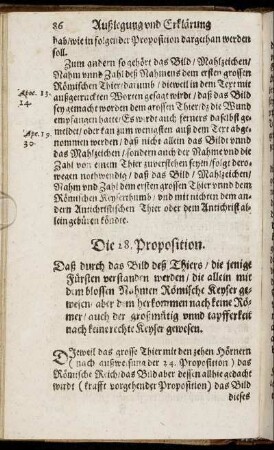 86 Außlegung vnd Erklärung
hab/ wie in folgender Proposition dargethan werden
soll.
Zum andern so gehört das Bild / Mahlzeichen/
Nahm vnnd Zahl deß Nahmens dem ersten grossen
Römischen Thier/ darumb / dieweil in dem Text mit
Apoc. 13.
14.
außgetruckten Worten gesagt wirdt / daß das Bild
sey gemacht worden dem grossen Thier/ dz die Wund
empfangen hatte/ Es wirdt auch ferners daselbst ge-
meldet/ oder kan zum wenigsten auß dem Text abge-
Apc. 19.
20.
nommen werden/ daß nicht allein das Bild vnnd
das Mahlzeichen / sondern auch der Nahme vnd die
Zahl von einem Thier zuverstehen seyen/ folgt dero-
wegen nothwendig / daß das Bild / Mahlzeichen/
Nahm vnd Zahl dem ersten grossen Thier vnnd dem
Römischen Keyserthumb / vnd mit nichten dem an-
dern Antichristischen Thier oder dem Antichrist al-
lein gebüren könde.
Die 28. Proposition.
Daß durch das Bild deß Thiers / die jenige
Fürsten verstanden werden / die allein mit
dem blossen Nahmen Römische Keyser ge-
wesen/ aber dem herkommen nach keine Rö-
mer/ auch der großmütig vnnd tapfferkeit
nach keine rechte Keyser gewesen.
Dieweil das grosse Thier mit den zehen Hörnern
nach außweisung der 24. Proposition ) das
Römische Reich/ das Bild aber dessen allhie gedacht
wirdt ( krafft vorgehender Proposition ) das Bild
dieses